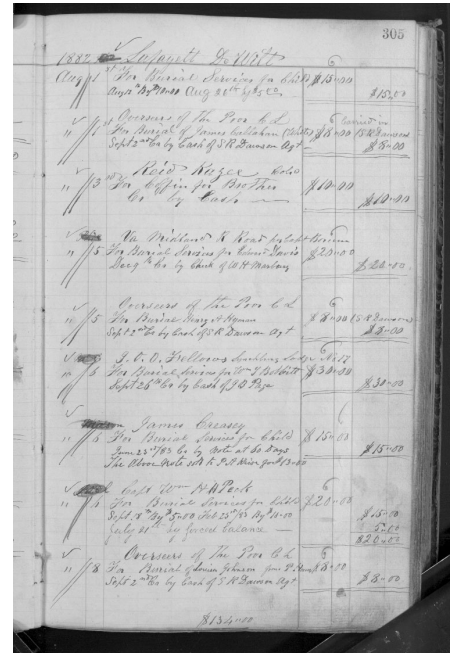 305
1882 Lafayett DeWitt 6
Aug 1st For Burial Services for Child $15-00
Aug 12th By $10-00 Aug 28th by $5.00 $15.00
Overseers of the Poor C L 6 Carried in
" 1st For Burial of James Callahan $8-00 S R Dawson
Sept 2nd Cr by Cash of S R Dawson Agt $8-00
Reid Kuger Cold
" 3rd For Coffin for Brother $10-00
Cr by Cash $10-00
Va Midland R Road
" 5 For Burial Services for Edward Davis $20-00
Dec 9th Cr by Check of W H Marbury $20-00
Overseers of the Poor C L 6
" 5 For Burial Mary A Hyman $8-00 S R Dawson
Sept 2nd Cr by Cash of S R Dawson Agt $8-00
I. O. O. Fellows Lynchburg Lodge No 17
" 6 For Burial Services for Wm T Bobbitt $30-00
Sept 26th Cr by Cash of J D Page $30-00
James Creasey 6
" 6 For Burial Services for Child $15-00
June 23rd /83 Cr by Note at 60 Days $15-00
The Above Note sold to P. A. for $13-00
Capt Wm H H Peck 6
" For Burial Services for Child $20-00
Sept 8th By $5-00 Feb 23rd /83 By $10-00 $15-00
July 21st by Balance 5-00
$20-00
Overseers of the Poor C L 6
" 8 For Burial of Louisa Johnson $8-00
Sept 2nd Cr by Cash of S R Dawson Agt $8-00
$134-00